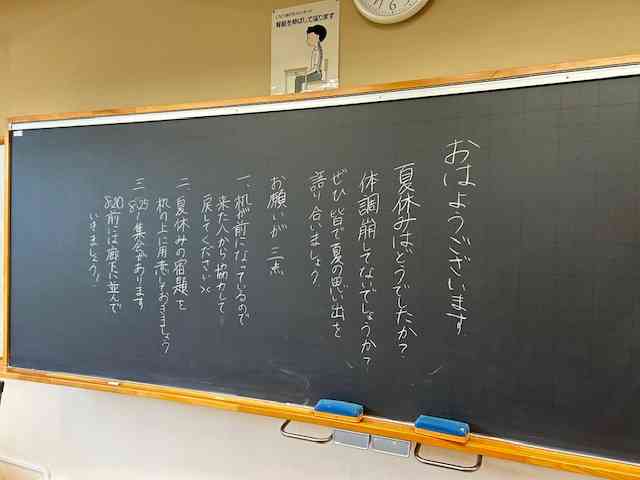 背筋を伸ばして座ります
おはようございます
夏休みはどうでしたか?
体調崩してないでしょうか?
ぜひ皆で夏の思い出を
語り合いましょう
お願いが 三点
一、机が前になっているので
来た人から協力して
戻してください
二、夏休みの宿題を
机の上に用意しておきましょう
三、8:25〜集会があります
8:20前には廊下に並んで
いきましょう!